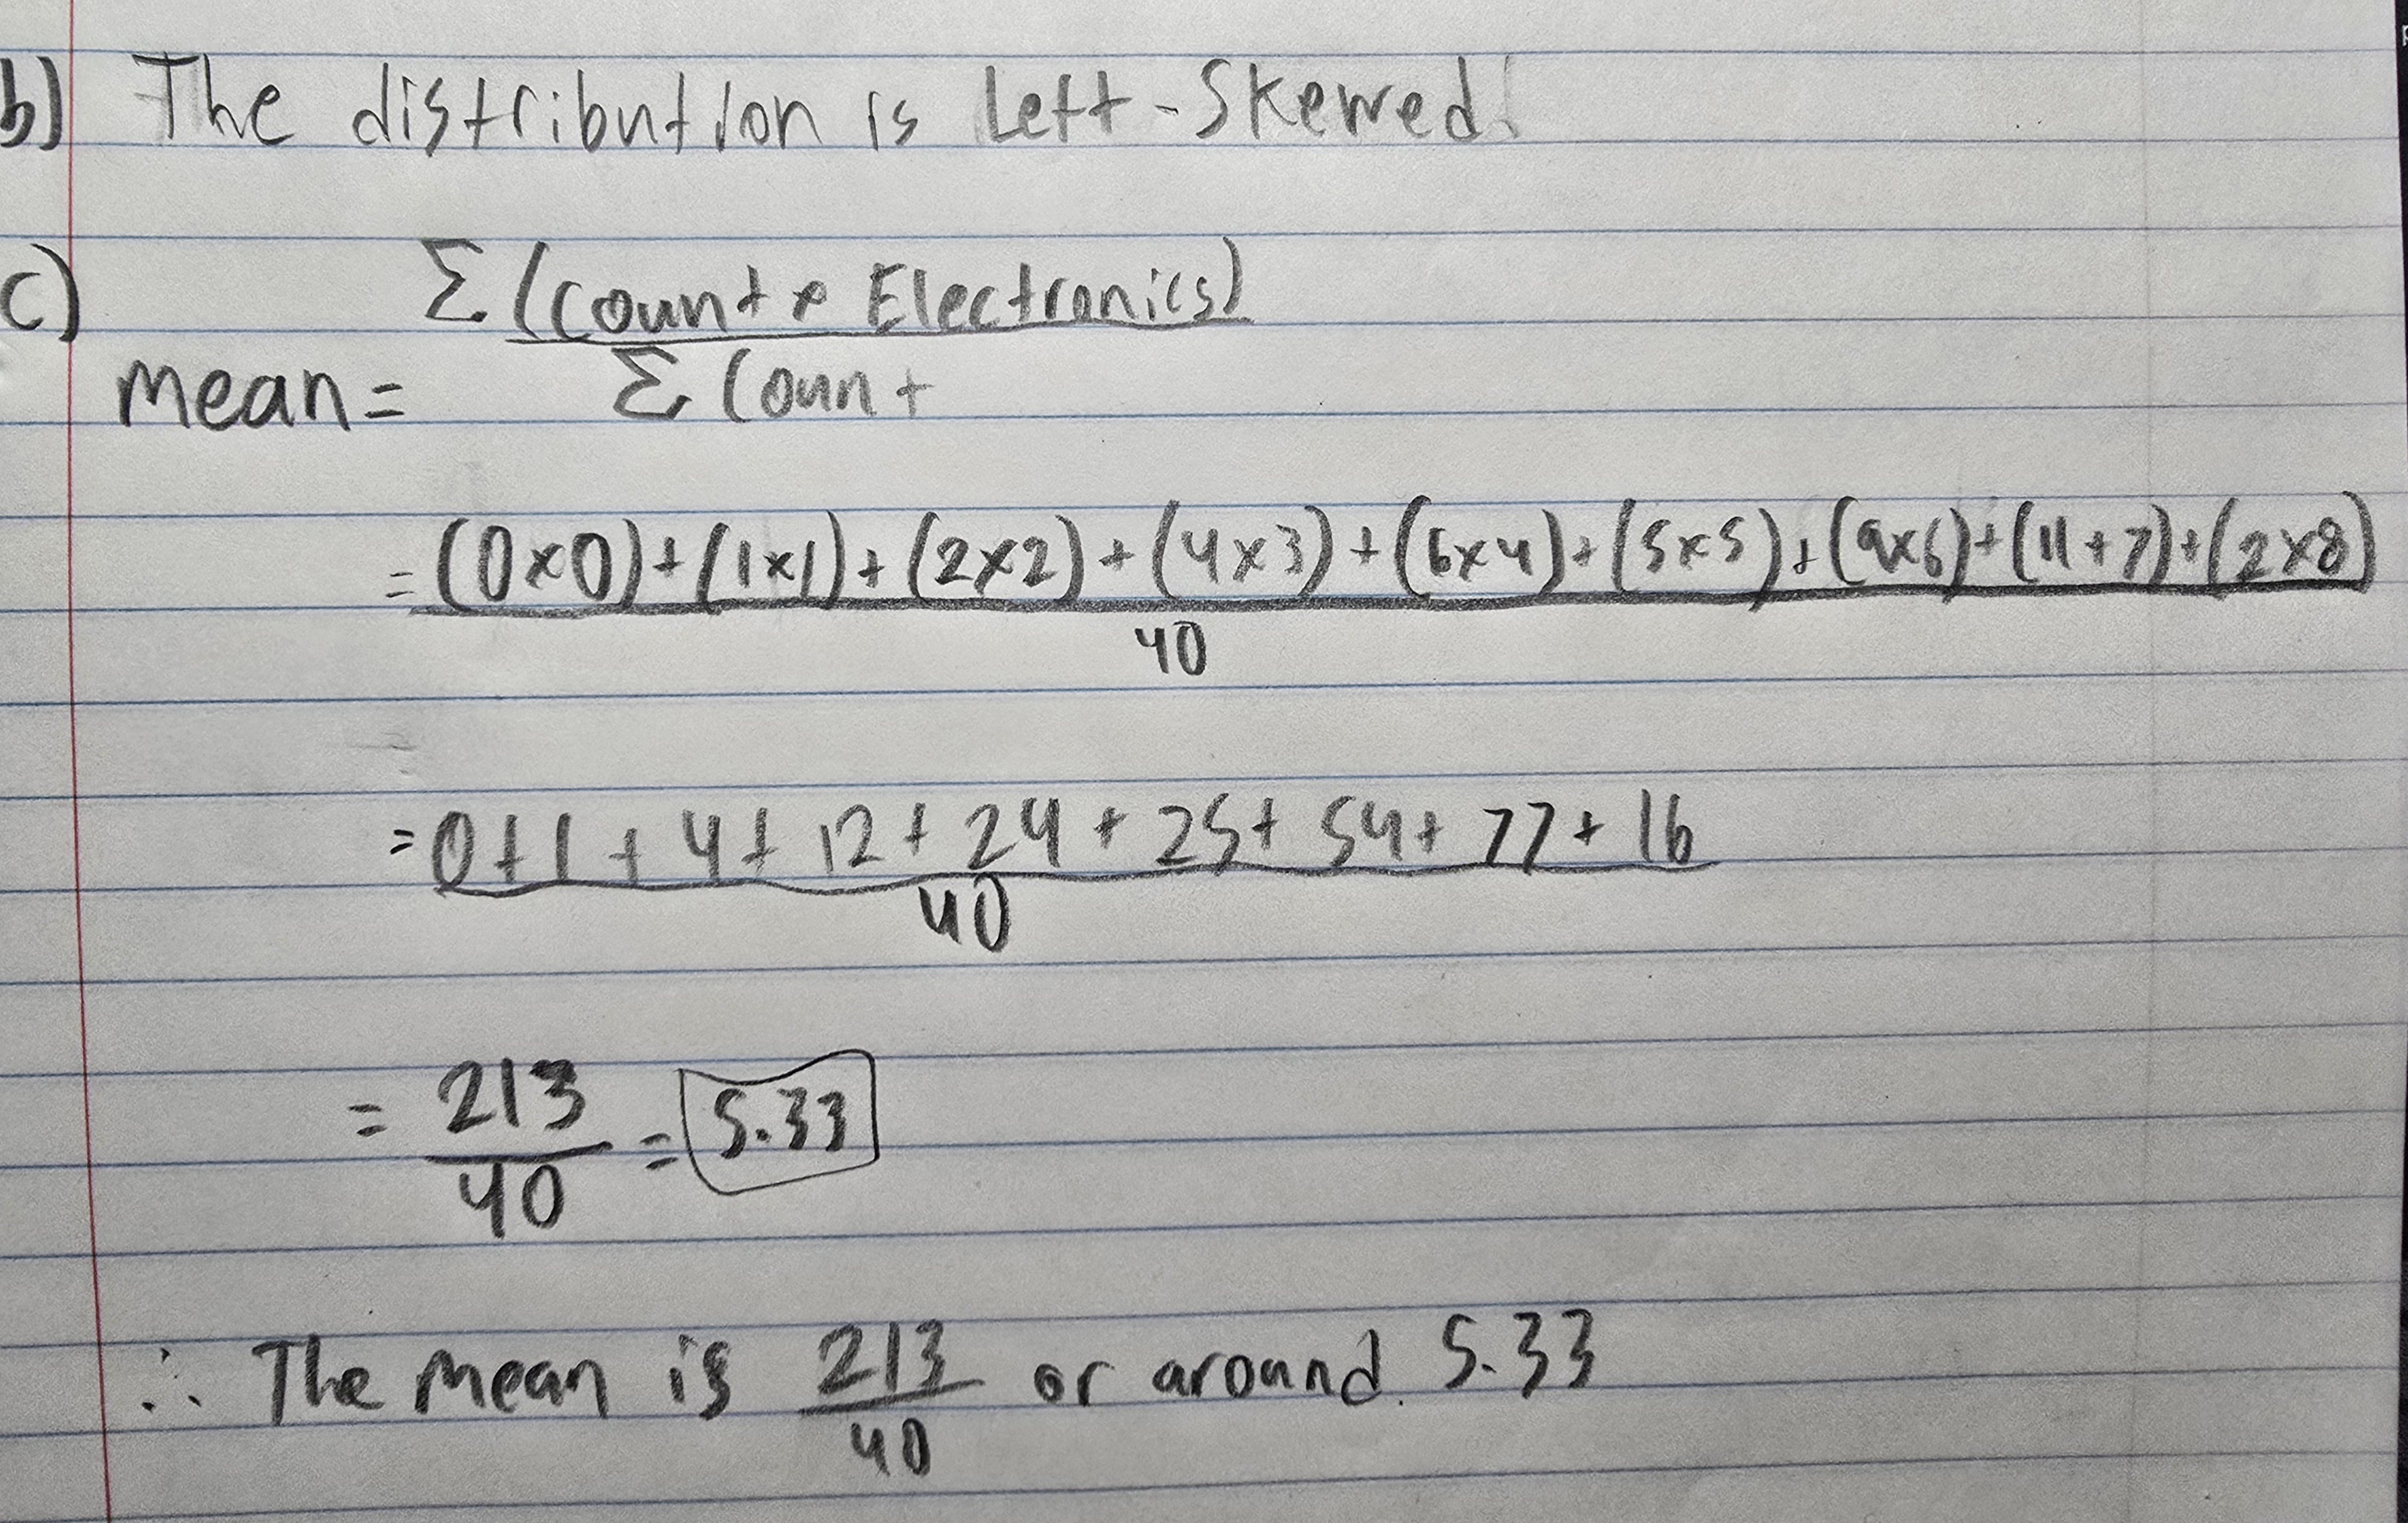 b) The distribution is Left-Skewed.
c)
Σ(Count × Electronics)
mean =
Σ Count
= (0×0)+(1×1)+(2×2)+(4×3)+(6×4)+(5×5)+(9×6)+(11+7)+(2×8)
40
= 0+1+4+12+24+25+54+77+16
40
= 213
40
= 5.33
∴ The mean is 213/40 or around 5.33